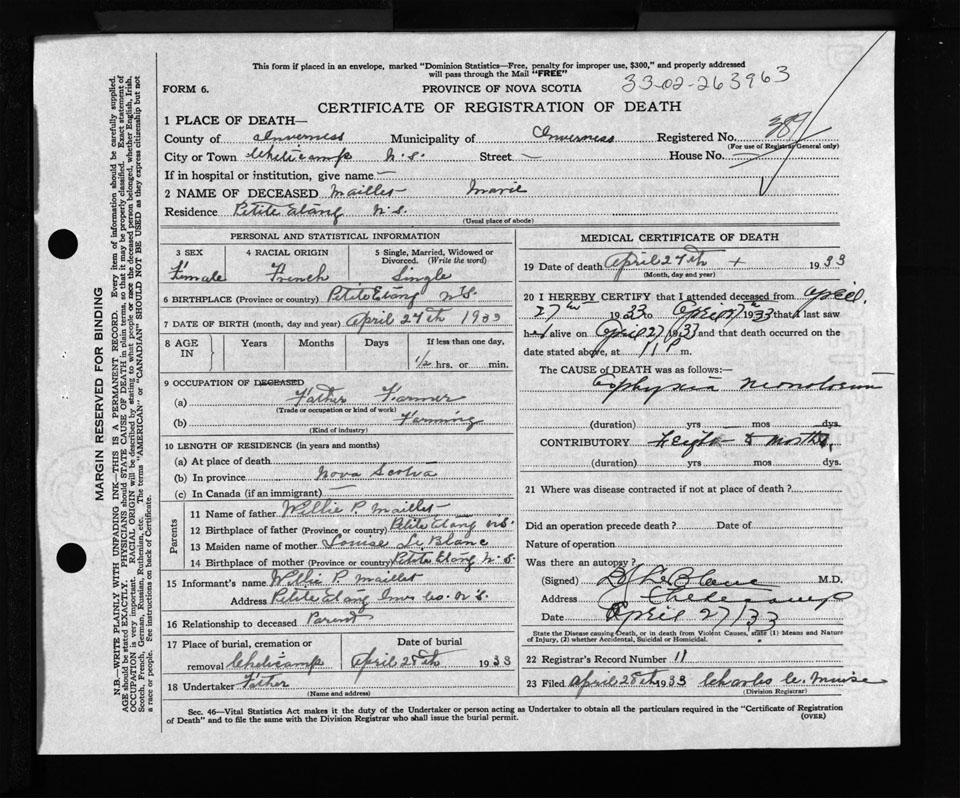 This form if placed in an envelope, marked "Dominion Statistics—Free, penalty for improper use, $300," and properly addressed
will pass through the Mail "FREE"
33-02-263963
FORM 6.
PROVINCE OF NOVA SCOTIA
CERTIFICATE OF REGISTRATION OF DEATH
1 PLACE OF DEATH—
County of Inverness Municipality of Inverness Registered No. 387
(For use of Registrar General only)
City or Town Cheticamp N.S. Street — House No.
If in hospital or institution, give name —
2 NAME OF DECEASED Maillet Marie
Residence Petite Etang N.S.
(Usual place of abode)
PERSONAL AND STATISTICAL INFORMATION
3 SEX 4 RACIAL ORIGIN 5 Single, Married, Widowed or
Divorced. (Write the word)
Female French Single
6 BIRTHPLACE (Province or country) Petite Etang N.S.
7 DATE OF BIRTH (month, day and year) April 27th 1933
8 AGE IN Years Months Days If less than one day,
1/2 hrs. or min.
9 OCCUPATION OF DECEASED
(a) Father Farmer
(Trade or occupation or kind of work)
(b) Farming
(Kind of industry)
10 LENGTH OF RESIDENCE (in years and months)
(a) At place of death
(b) In province Nova Scotia
(c) In Canada (if an immigrant) —
Parents
11 Name of father Willie P. Maillet
12 Birthplace of father (Province or country) Petite Etang N.S.
13 Maiden name of mother Louise Le Blanc
14 Birthplace of mother (Province or country) Petite Etang N.S.
15 Informant's name Willie P. Maillet
Address Petite Etang Inv. Co. N.S.
16 Relationship to deceased Parent
17 Place of burial, cremation or Date of burial
removal Cheticamp April 28th 1933
18 Undertaker Father
(Name and address)
MEDICAL CERTIFICATE OF DEATH
19 Date of death April 27th + 1933
(Month, day and year)
20 I HEREBY CERTIFY that I attended deceased from April
27th 1933 to April 27th 1933 that I last saw
her alive on April 27 1933 and that death occurred on the
date stated above, at 11 P m.
The CAUSE of DEATH was as follows:—
Asphyxia Neonatorum
(duration) yrs mos dys.
CONTRIBUTORY 8 months
(duration) yrs mos dys.
21 Where was disease contracted if not at place of death?
Did an operation precede death? Date of
Nature of operation
Was there an autopsy?
(Signed) LeBlanc M.D.
Address Cheticamp
Date April 27/33
State the Disease causing Death, or in death from Violent Causes, state (1) Means and Nature
of Injury, (2) whether Accidental, Suicidal or Homicidal.
22 Registrar's Record Number 11
23 Filed April 28th 1933 Charles W. Muise
(Division Registrar)
Sec. 46—Vital Statistics Act makes it the duty of the Undertaker or person acting as Undertaker to obtain all the particulars required in the "Certificate of Registration
of Death" and to file the same with the Division Registrar who shall issue the burial permit.
(OVER)
MARGIN RESERVED FOR BINDING
N.B.—WRITE PLAINLY WITH UNFADING INK—THIS IS A PERMANENT RECORD. Every item of information should be carefully supplied.
AGE should be stated EXACTLY. PHYSICIANS should STATE CAUSE OF DEATH in plain terms, so that it may be properly classified. Exact statement of
OCCUPATION is very important. RACIAL ORIGIN will be described by stating to what people or race the deceased person belonged, whether English, Irish,
Scotch, French, German, Russian, Ruthenian, etc. The terms "AMERICAN" or "CANADIAN" SHOULD NOT BE USED as they express citizenship but not
a race or people. See instructions on back of Certificate.